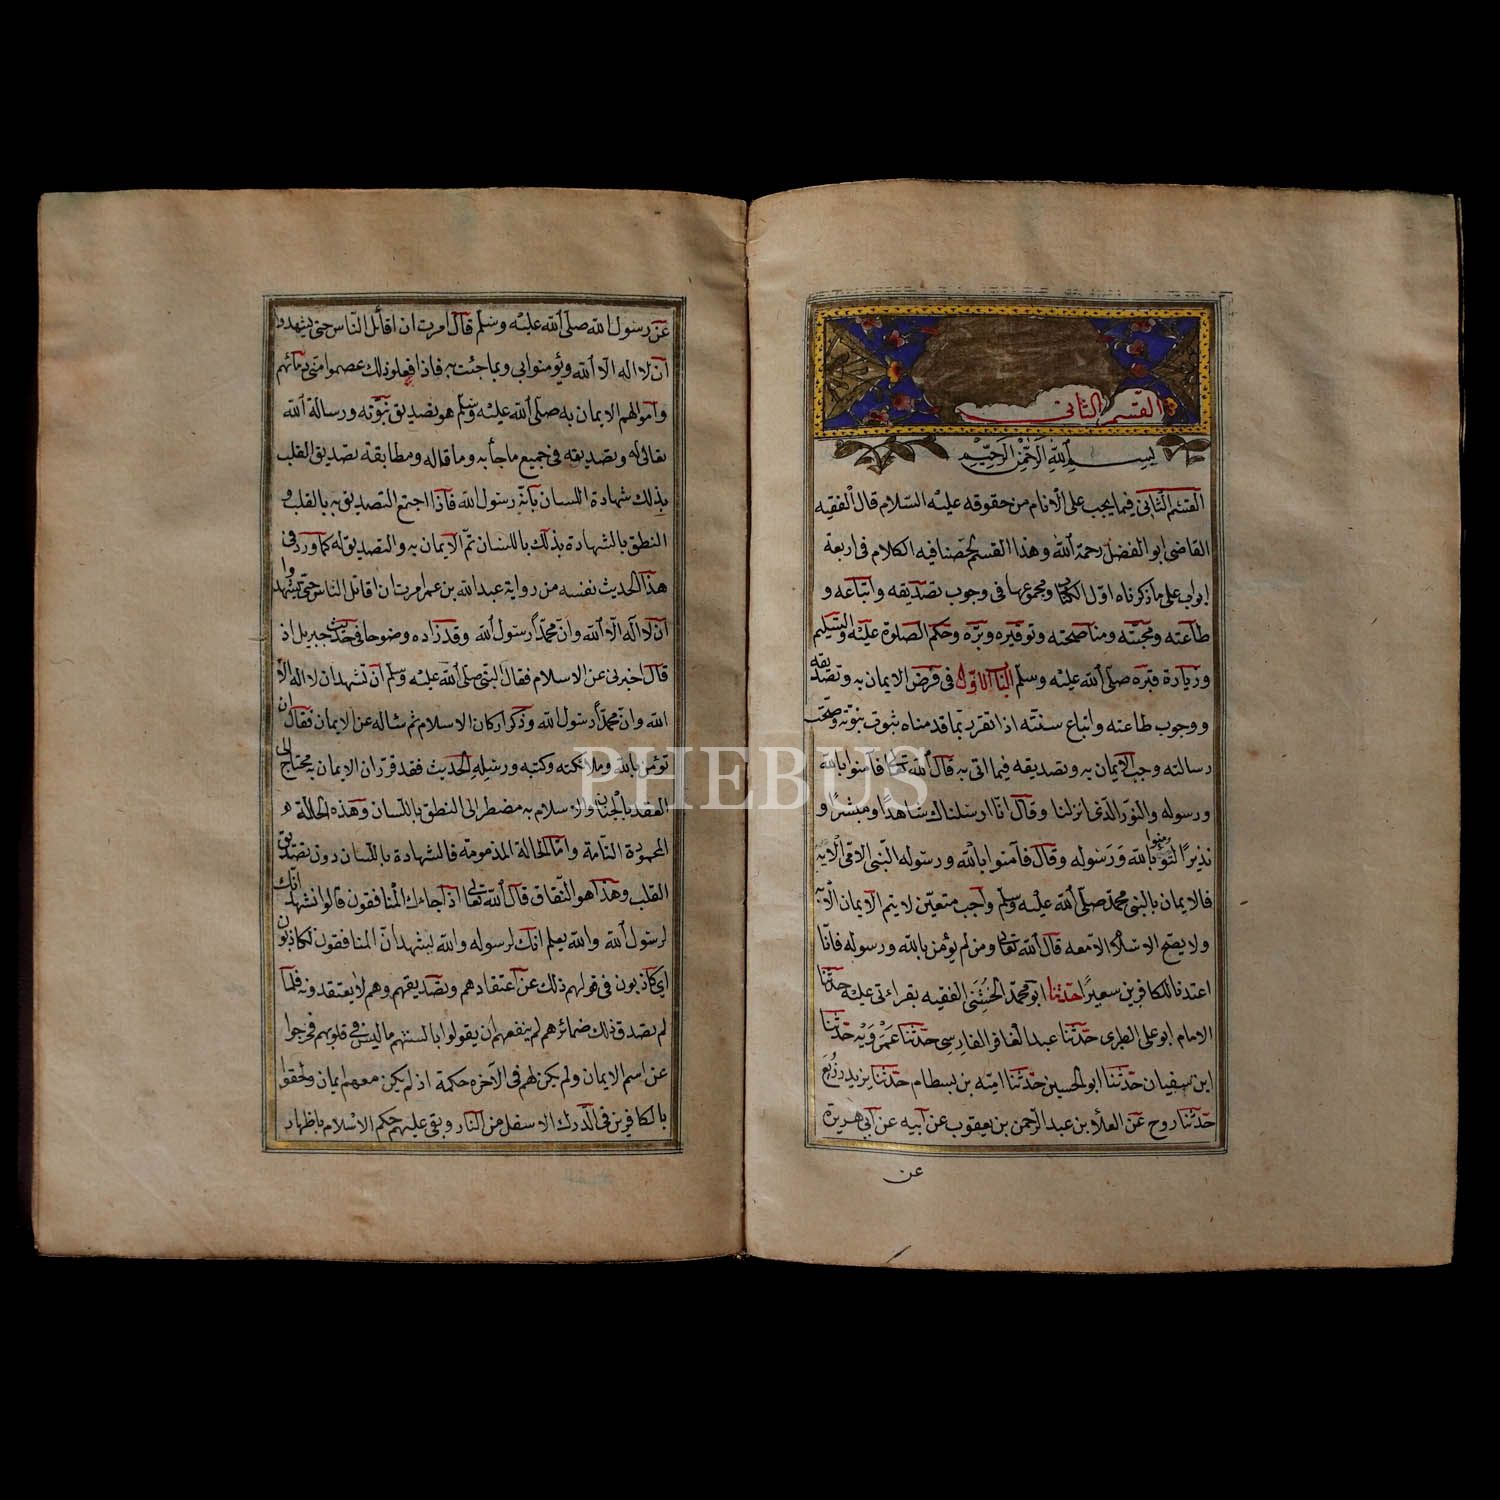 القسم الثاني
بسم الله الرحمن الرحيم
القسم الثاني فيما يجب على الانام من حقوقه عليه السلام قال الفقيه
القاضي ابو الفضل رحمة الله وهذا القسم لخصنا فيه الكلام في اربعة
ابواب على ما ذكرناه اول الكتاب ومجموعها في وجوب تصديقه واتباعه و
طاعته ومحبته ومناصحته وتوقيره وبره وحكم الصلوة عليه والتسليم
وزيارة قبره صلى الله عليه وسلم الباب الاول في فرض الايمان به وتصديقه
ووجوب طاعته واتباع سنته اذا تقرر بما قدمناه ثبوت نبوته وصحت
رسالته وجب الايمان به وتصديقه فيما اتى به قال الله تعالى فآمنوا بالله
ورسوله والنور الذي انزلنا وقال انا ارسلناك شاهدا ومبشرا و
نذيرا لتؤمنوا بالله ورسوله وقال فآمنوا بالله ورسوله النبي الامي الآية
فالايمان بالنبي محمد صلى الله عليه وسلم واجب متعين لا يتم الايمان الا به
ولا يصح الاسلام الا معه قال الله تعالى ومن لم يؤمن بالله ورسوله فانا
اعتدنا للكافرين سعيرا حدثنا ابو محمد الخشني الفقيه بقراءتي عليه حدثنا
الامام ابو علي الطبري حدثنا عبد الغافر الفارسي حدثنا عمرويه حدثنا
ابن سفيان حدثنا ابو الحسين حدثنا امية بن بسطام حدثنا يزيد زريع
حدثنا روح عن العلا بن عبد الرحمن بن يعقوب عن ابيه عن ابي هريرة
عن
عن رسول الله صلى الله عليه وسلم قال امرت ان اقاتل الناس حتى يشهدوا
ان لا اله الا الله ويؤمنوا بي وبما جئت به فاذا فعلوا ذلك عصموا مني دمائهم
واموالهم الايمان به صلى الله عليه وسلم هو تصديق نبوته ورسالة الله
تعالى له وتصديقه في جميع ما جأ به وما قاله ومطابقة تصديق القلب
بذلك شهادة اللسان بانه رسول الله فاذا اجتمع التصديق به بالقلب و
النطق بالشهادة بذلك باللسان تم الايمان به والتصديق له كما ورد في
هذا الحديث نفسه من رواية عبد الله بن عمر امرت ان اقاتل الناس حتى يشهدوا
ان لا اله الا الله وان محمدا رسول الله وقد زاده وضوحا في حديث جبريل اذ
قال اخبرني عن الاسلام فقال النبي صلى الله عليه وسلم ان تشهد ان لا اله الا
الله وان محمدا رسول الله وذكر اركان الاسلام ثم ساله عن الايمان فقال ان
تؤمن بالله وملائكته وكتبه ورسله الحديث فقد قرر ان الايمان به محتاج الى
العقد بالجنان والاسلام به مضطر الى النطق باللسان وهذه الحالة
المحمودة التامة واما الحالة المذمومة فالشهادة باللسان دون تصديق
القلب وهذا هو النفاق قال الله تعالى اذا جاءك المنافقون قالوا نشهد انك
لرسول الله والله يعلم انك لرسوله والله يشهد ان المنافقون لكاذبون
اي كاذبون في قولهم ذلك عن اعتقادهم وتصديقهم وهم لا يعتقدونه فلما
لم تصدق ذلك ضمائرهم لم ينفعهم ان يقولوا بالسنتهم ما ليس في قلوبهم فخرجوا
عن اسم الايمان ولم يكن لهم في الآخرة حكمة اذ لم يكن معهم ايمان ولحقوا
بالكافرين في الدرك الاسفل من النار وبقى عليهم حكم الاسلام باظهار
PHEBUS